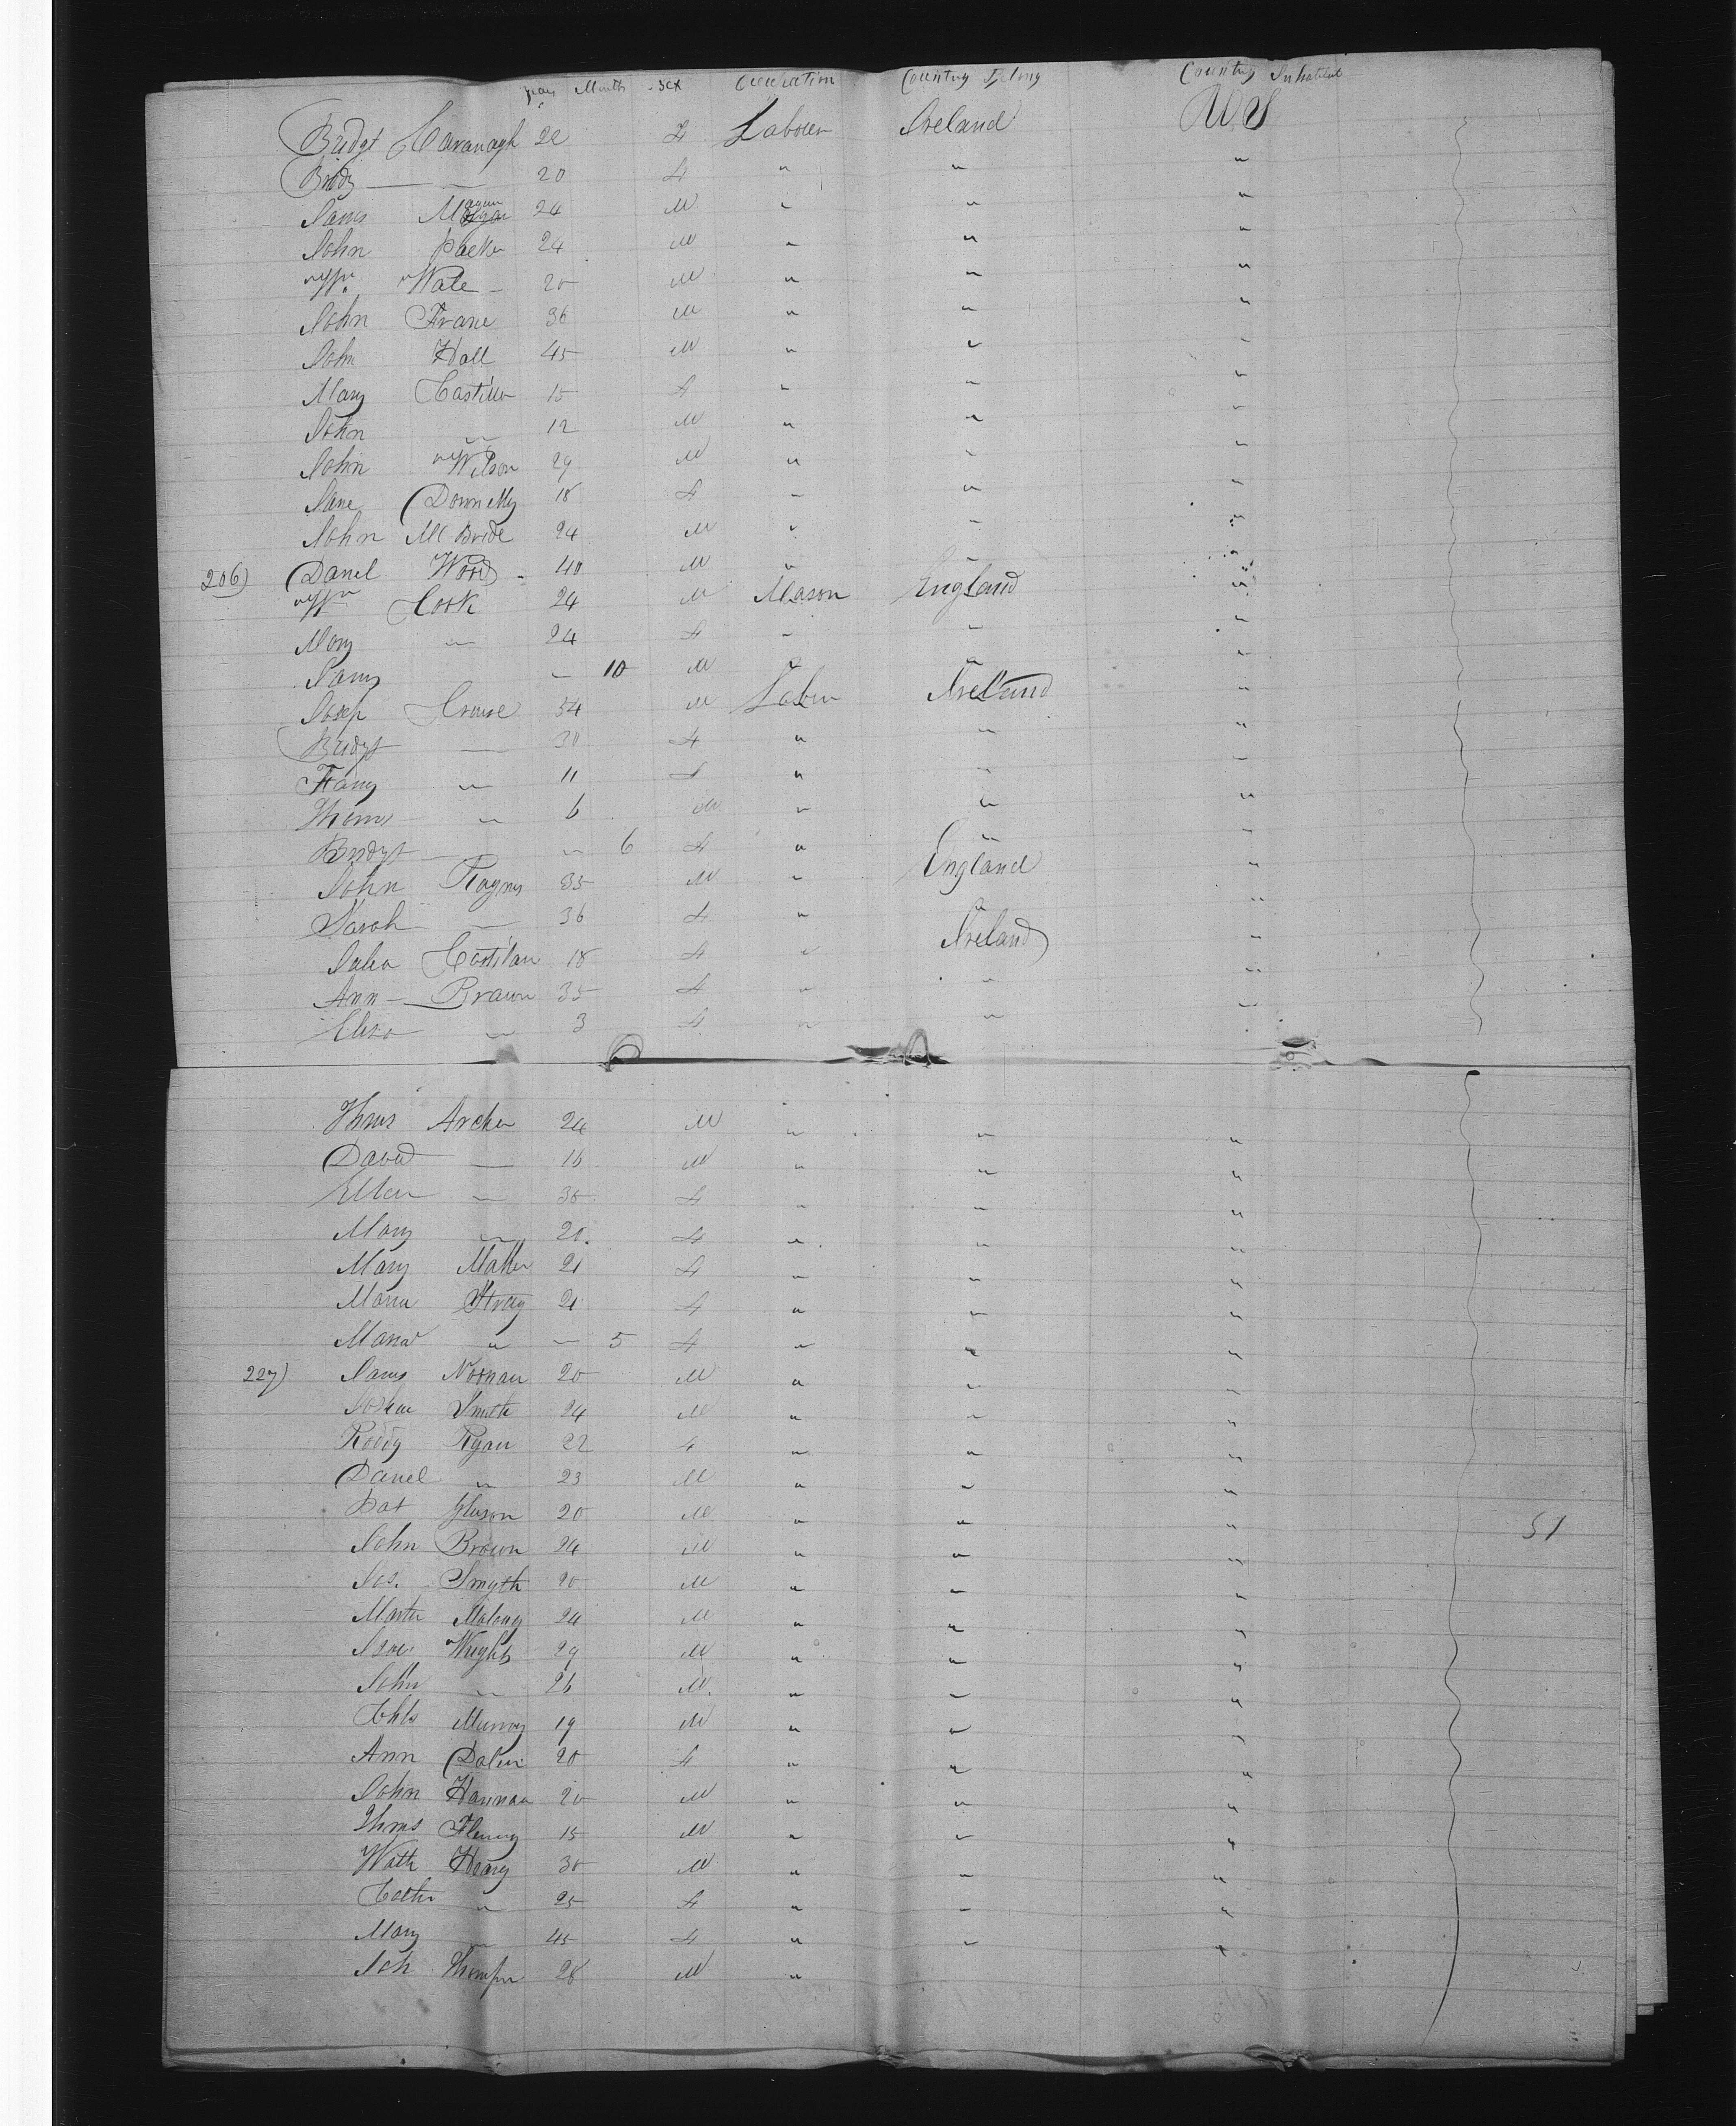 years Month Sex Occupation Country Belong Country Inhabitat
Bridgt Cavanagh 22 f Labourer Ireland U.S
Bridg — 20 f " " "
James 24 M " " "
John Packer 24 M " " "
Wm. Wate 20 M " " "
John Frane 36 M " " "
John Hall 45 M " " "
Mary Castillo 15 f " " "
John " 12 M " " "
John Wilson 29 M " " "
Jane Donnelly 18 f " " "
John McBride 24 M " " "
206) Danel Wood 40 M " " "
Wm Cork 24 M Mason England "
Mary " 24 f " " "
James — 10 M " " "
Josep Crouse 54 M Labur Ireland "
Bridgt — 30 f " " "
Fany " 11 f " " "
Thoms " 6 M " " "
Bridgt " 6 f " " "
John Raynes 35 M " England "
Sarah — 36 f " " "
Julia Costilan 18 f " Ireland "
Ann Brawn 35 f " " "
Elisa " 3 f " " "
Thms Archer 24 M " " "
David — 16 M " " "
Ellen — 30 f " " "
Mary " 20 f " " "
Mary Maher 21 f " " "
Maria Stray 21 f " " "
Maria " — 5 f " " "
227) James Noonan 20 M " " "
Smith 24 M " " "
Roddy Ryan 22 f " " "
Danel " 23 M " " "
Pat Gleason 20 M " " " 51
John Brown 24 M " " "
Jos. Smyth 20 M " " "
Martin Malony 24 M " " "
Wright 29 M " " "
John " 26 M " " "
Chls Murray 19 M " " "
Ann 20 f " " "
John Hannan 20 M " " "
Thms Fleming 15 M " " "
Watt Henry 30 M " " "
Cathr " 25 f " " "
Mary " 45 f " " "
Joh Thompsn 28 M "